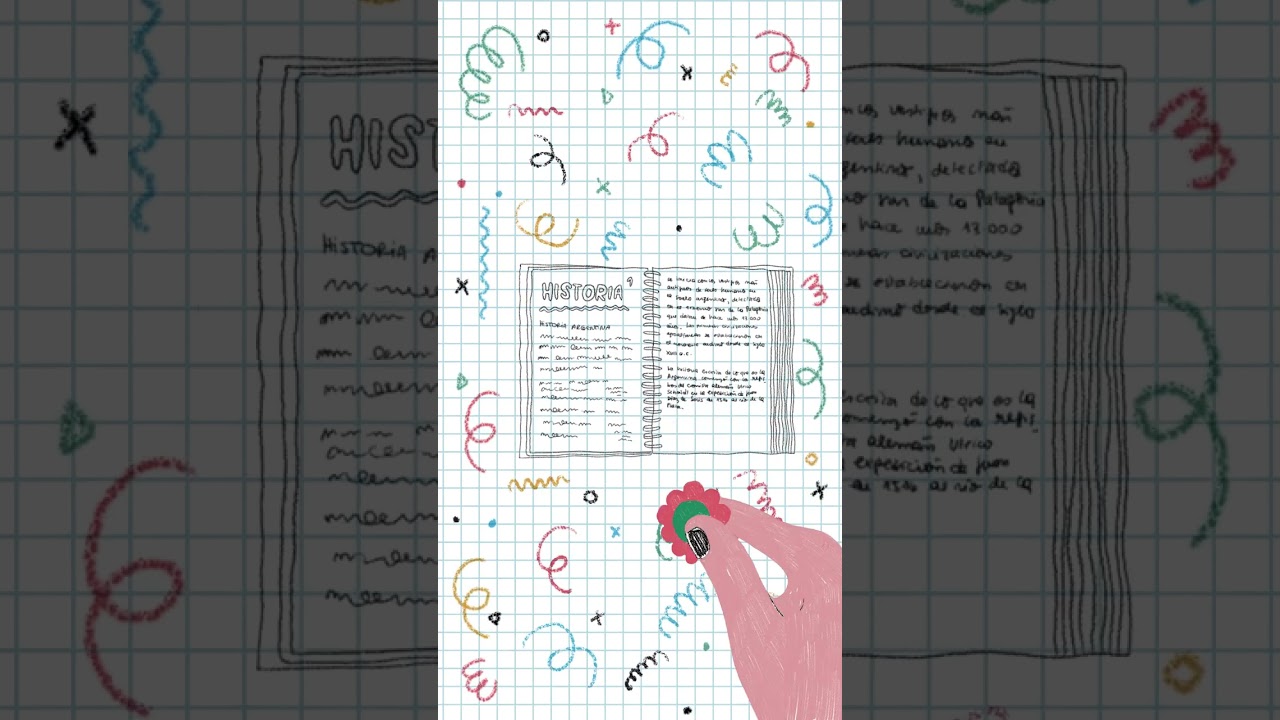 HISTORIA
HISTORIA ARGENTINA
se inicia con los vestigios más
antiguos de seres humanos en
el suelo argentino, detectados
en el extremo sur de la Patagonia
que datan de hace más 13.000
años. Las primeras civilizaciones
se establecieron en
el noroeste andino desde el siglo
XVIII a.C.
La historia escrita de lo que es la
Argentina comenzó con la
Alemán Ulrico
en la expedición de Juan
Díaz de Solís de 1516 al río de la
Plata.